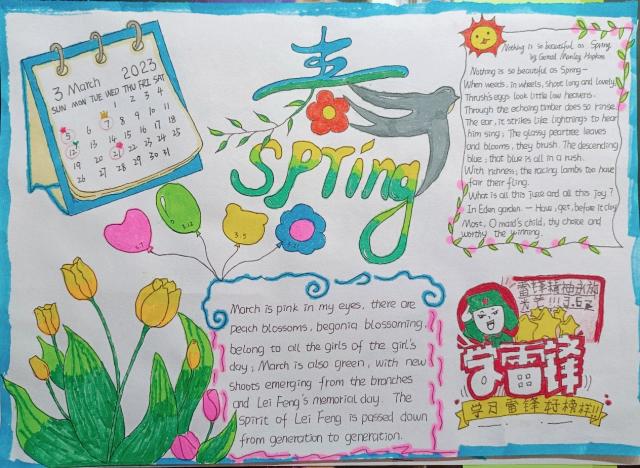 3 March 2023
SUN MON TUE WED THU FRI SAT
1 2 3 4
5 6 7 8 9 10 11
12 13 14 15 16 17 18
19 20 21 22 23 24 25
26 27 28 29 30 31
春
Spring
3.7
3.12
3.5
3.21
Nothing is so beautiful as Spring
by Gerard Manley Hopkins
Nothing is so beautiful as Spring—
When weeds, in wheels, shoot long and lovely
Thrush's eggs look little low heavens.
Through the echoing timber does so rinse
The ear, it strikes like lightnings to hear
him sing; The glassy peartree leaves
and blooms, they brush. The descending
blue; that blue is all in a rush.
With richness; the racing lambs too have
fair their fling.
What is all this juice and all this joy?
In Eden garden.— Have, get, before it cloy
Most, O maid's child, thy choice and
worthy the winning.
March is pink in my eyes, there are
peach blossoms, begonia blossoming,
belong to all the girls of the girl's
day; March is also green, with new
shoots emerging from the branches
and Lei Feng's memorial day. The
spirit of Lei Feng is passed down
from generation to generation.
雷锋精神永放
光芒!!!3.5
学雷锋
学习雷锋 榜样!!